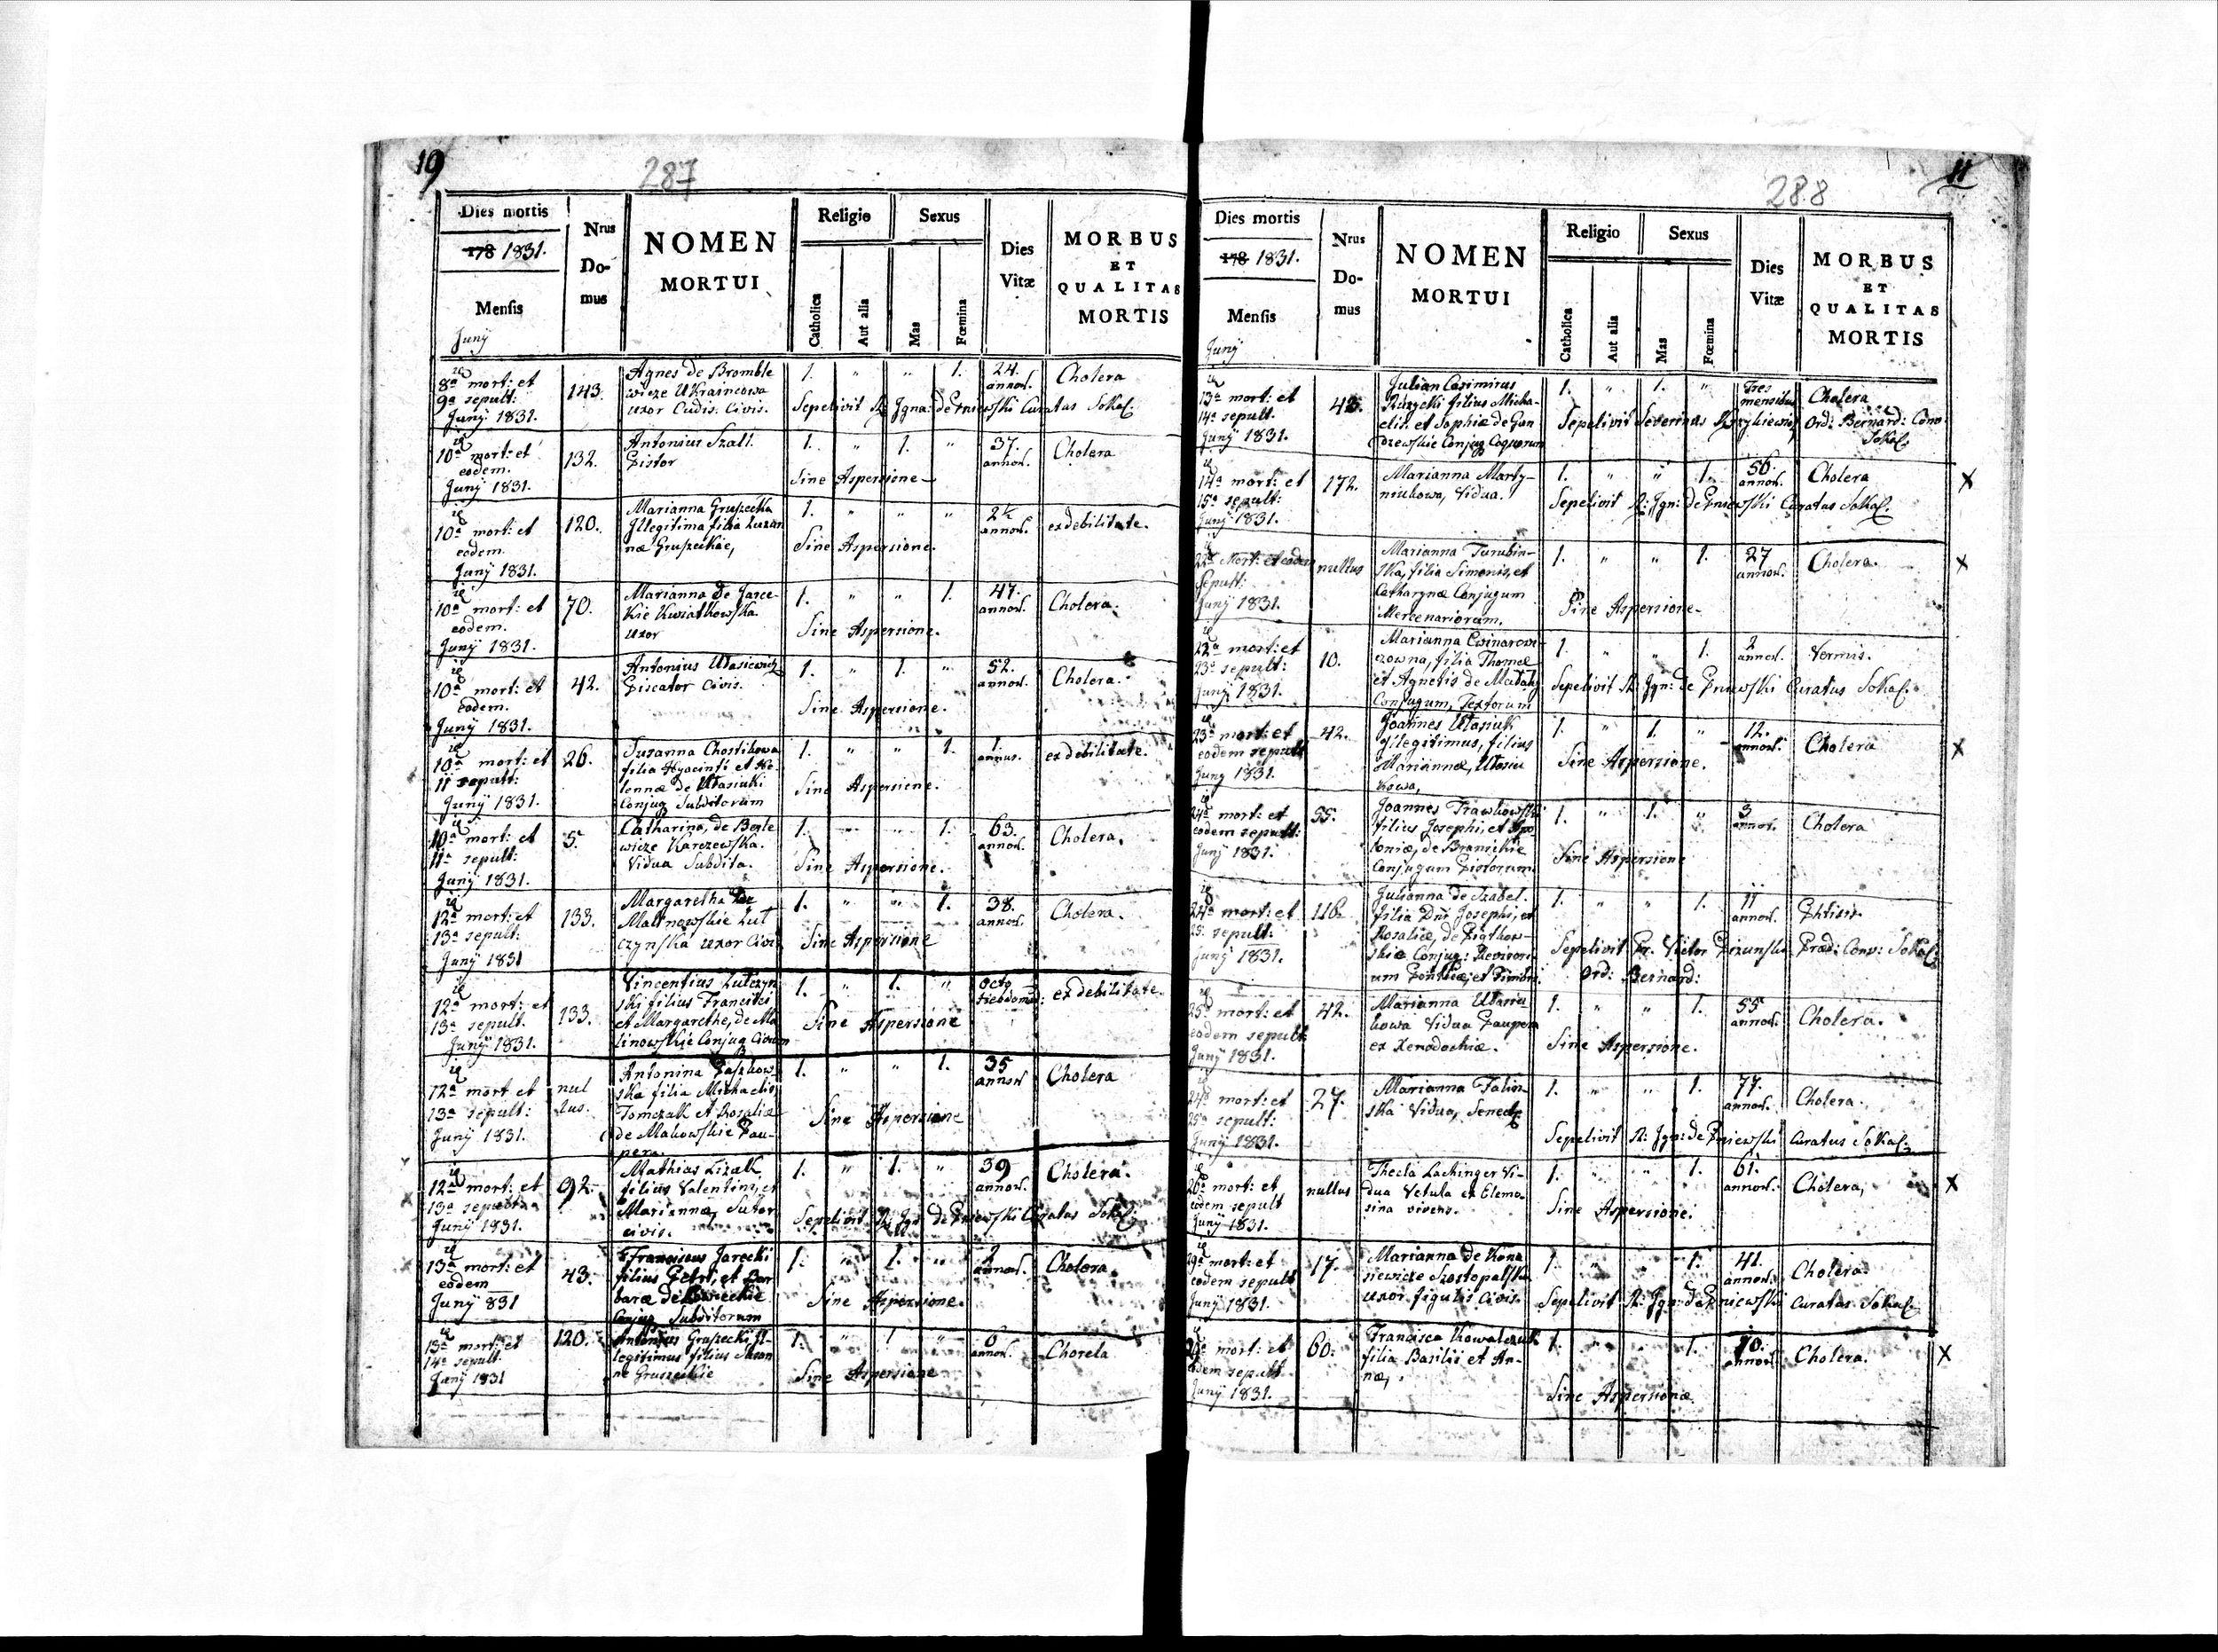 19
287
Dies mortis
178 1831.
Mensis
Junÿ
Nrus
Do-
mus
NOMEN
MORTUI
Religio
Sexus
Catholica
Aut alia
Mas
Fœmina
Dies
Vitæ
MORBUS
ET
QUALITAS
MORTIS
8a mort: et
9a sepult:
Junÿ 1831.
143.
Agnes de Bromble
wicze Ukraincowa
uxor Cudis. Civis.
1. " " 1.
24.
annor.
Cholera
Sepelivit R. Igna: de Pniewski Curatus Sokal:
10a mort: et
eodem.
Junÿ 1831.
132.
Antonius Szall.
Pistor
1. " 1. "
37.
annor.
Cholera
Sine Aspersione
10a mort: et
eodem.
Junÿ 1831.
120.
Marianna Gruszecka
Illegitima filia
næ Gruszeckie,
1. " " "
2½
annor.
ex debilitate.
Sine Aspersione.
10a mort: et
eodem.
Junÿ 1831.
70.
Marianna de Jarce-
kie Kwiatkowska.
uxor
1. " " 1.
47.
annor.
Cholera.
Sine Aspersione.
10a mort: et
eodem.
Junÿ 1831.
42.
Antonius Utasiewicz
Piscator Civis.
1. " 1. "
52.
annor.
Cholera.
Sine Aspersione.
10a mort: et
11 sepult:
Junÿ 1831.
26.
Susanna Chostikowa
filia Hyacinti et He-
lennæ de Utasiuki
Conjug Subditorum
1. " " 1.
1
annus.
ex debilitate.
Sine Aspersione.
10a mort: et
11a sepult:
Junÿ 1831.
5.
Catharina, de Berle
wicze Karczewska.
Vidua Subdita.
1. " " 1.
63.
annor.
Cholera.
Sine Aspersione.
12a mort: et
13a sepult:
Junÿ 1831
133.
Margaretha de
Malinowskie Lut
czynska uxor Civis
1. " " 1.
38.
annor.
Cholera.
Sine Aspersione
12a mort: et
13a sepult.
Junÿ 1831.
133.
Vincentius Lutczyn
ski filius Francisci
et Margarethe, de Ma
linowskie Conjug Civium
1. " 1. "
octo
hebdomad:
ex debilitate.
Sine Aspersione
12a mort et
13a sepult:
Junÿ 1831.
nul
lus.
Antonina Paszkow
ska filia Michaelis
Tomczak et Rosaliæ
de Makowskie Pau-
pera.
1. " " 1.
35
annor
Cholera
Sine Aspersione
12a mort: et
13a sepult.
Junÿ 1831.
92.
Mathias Lizak,
filius Valentini, et
Mariannæ, Sutor
civis.
1. " 1. "
39
annor.
Cholera.
Sepelivit R: Ign: de Pniewski Curatus Sokal:
13a mort: et
eodem
Junÿ 831
43.
Franciscus Jarecki
filius Petri, et Bar
baræ de
Conjug Subditorum
1. " 1. "
2
annor.
Cholera.
Sine Aspersione.
13a mort: et
14a sepult:
Junÿ 1831
120.
Antonius Gruszecki Il-
legitimus filius
ne Gruszeckie
1. " 1 "
6
annor.
Chorela
Sine Aspersione
11
288
Dies mortis
178 1831.
Mensis
Junÿ
Nrus
Do-
mus
NOMEN
MORTUI
Religio
Sexus
Catholica
Aut alia
Mas
Fœmina
Dies
Vitæ
MORBUS
ET
QUALITAS
MORTIS
13a mort: et
14a sepult.
Junÿ 1831.
43.
Julian Casimirus
Ruzycki filius Micha-
elis. et Sophiæ de Gon
dzewskie Conjug Coquorum
1. " 1. "
Tres
menses
Cholera
Sepelivit Severinus Ord: Bernard: Conv.
Sokal.
14a mort: et
15a sepult:
Junÿ 1831.
172.
Marianna Marty-
niukowa, Vidua.
1. " " 1.
56.
annor.
Cholera
X
Sepelivit R: Ign: de Pniewski Curatus Sokal:
22a Mort: et eodem
Sepult:
Junÿ 1831.
nullus
Marianna Turubin-
ska, filia Simonis, et
Catharynæ Conjugum
Mercenariorum.
1. " " 1.
27
annor.
Cholera.
X
Sine Aspersione
22a mort: et
23a sepult:
Junÿ 1831.
10.
Marianna
czowna, filia Thomæ
et Agnetis de
Conjugum, Textorum
1. " " 1.
2
annor.
Vermis.
Sepelivit R. Ign: de Pniewski Curatus Sokal:
23a mort: et
eodem sepult
Junÿ 1831.
42.
Joannes Utasiuk
Illegitimus, filius
Mariannæ, Utasiu
kowa,
1. " 1. "
12.
annor.
Cholera
X
Sine Aspersione.
24a mort: et
eodem sepult:
Junÿ 1831.
55.
Joannes Trawkowski
filius Josephi, et Apo
loniæ, de Branickie
Conjugum Pistorum
1. " 1. "
3
annor.
Cholera
Sine Aspersione
24a mort: et
25. sepult:
Junÿ 1831.
116.
Julianna de Szabel.
filia Dni Josephi, et
Rosaliæ, de Piątkow-
skie Conjug: Revisor-
um
1. " " 1.
11
annor.
Phtisis.
Sepelivit Pr. Victor Præd: Conv: Sokal:
Ord: Bernard:
25a mort: et
eodem sepult
Junÿ 1831.
42.
Marianna Utasiu
kowa Vidua Paupera
ex Xenodochiæ.
1. " " 1.
55
annor.
Cholera.
Sine Aspersione.
24a mort: et
25a sepult:
Junÿ 1831.
27.
Marianna Falin-
ska Vidua, Senect:
1. " " 1.
77.
annor.
Cholera.
Sepelivit R: Ign: de Pniewski Curatus Sokal:
26a mort: et
eodem sepult
Junÿ 1831.
nullus
Thecla Lachinger Vi-
dua Vetula ex Elemo-
sina vivens.
1. " " 1.
61.
annor.
Cholera,
X
Sine Aspersione.
29a mort: et
eodem sepult
Junÿ 1831.
17.
Marianna de Kona
siewicze Szostopalska
uxor figulis Civis.
1. " " 1.
41.
annor.
Cholera.
Sepelivit R: Ign: de Pniewski Curatus Sokal:
mort: et
eodem sepult
Junÿ 1831.
60.
Francisca Kowalczuk
filia Basilii et An-
næ,
1. " " 1.
10.
annor.
Cholera.
X
Sine Aspersionæ.